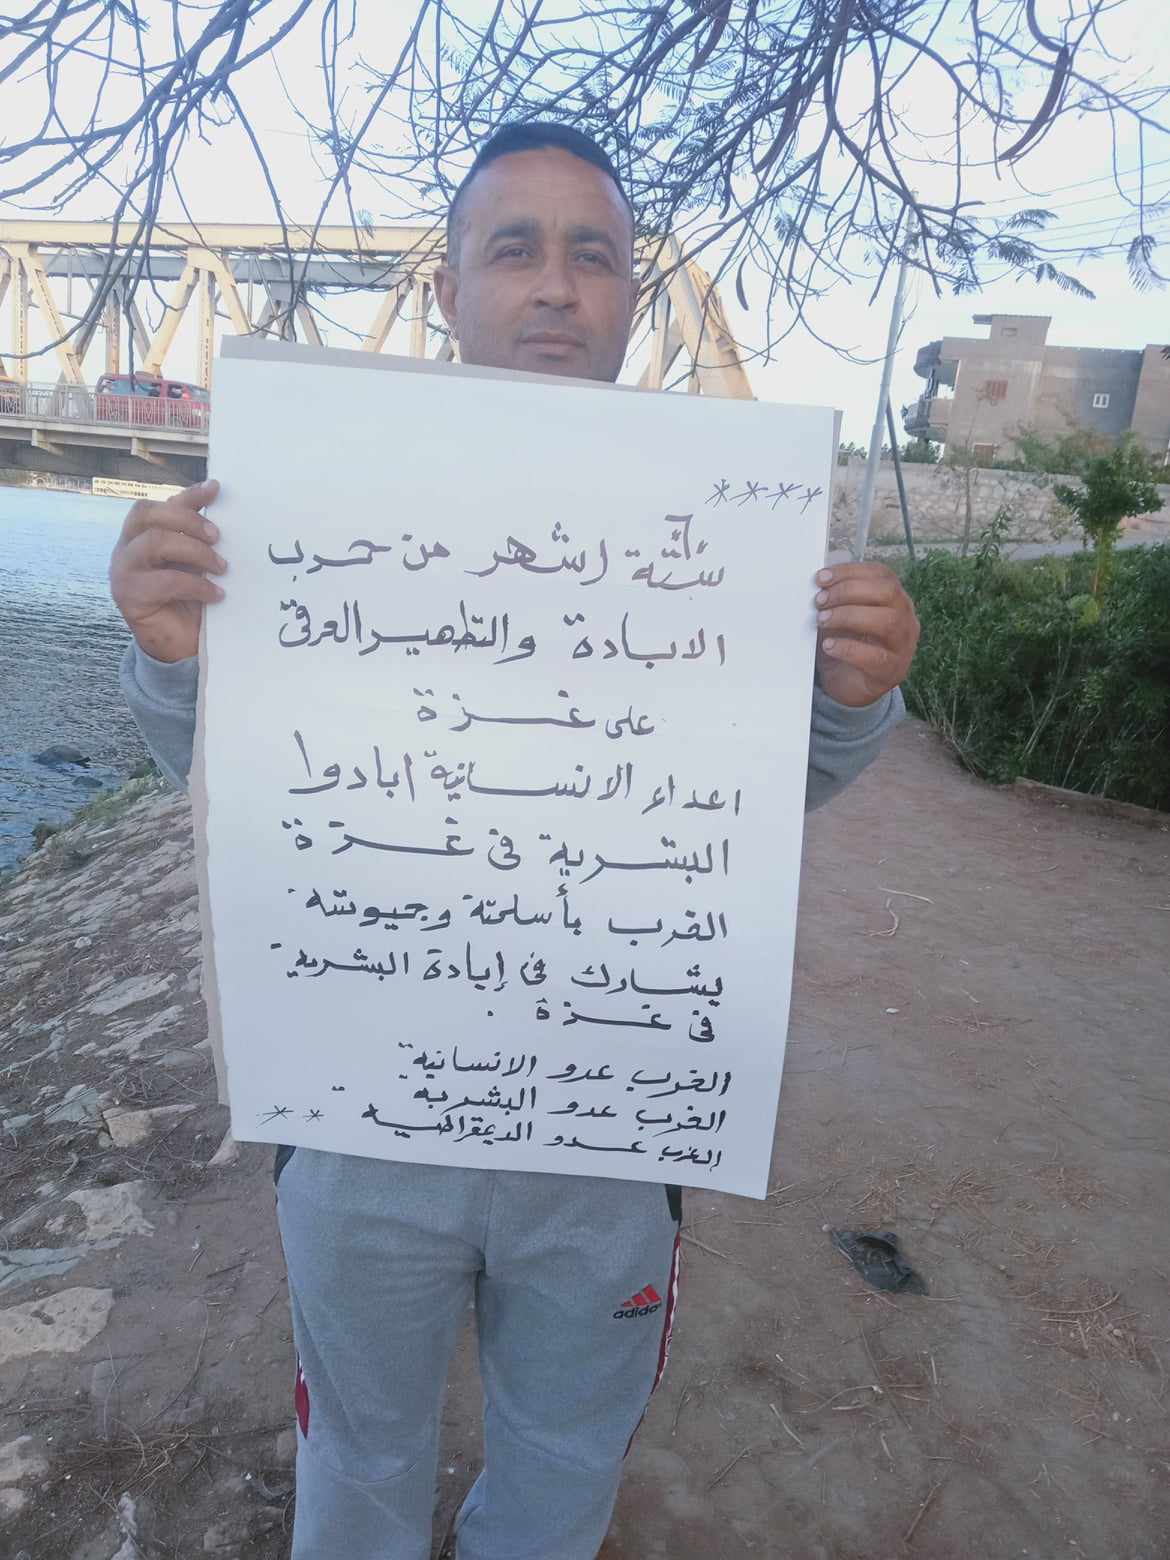 ****
ستة اشهر من حرب
الابادة والتطهير العرقى
على غزة
اعداء الانسانية ابادوا
البشرية فى غزة
الغرب بأسلحتة وجيوشة
يشارك فى إبادة البشرية
فى غزة .
الغرب عدو الانسانية
الغرب عدو البشرية
الغرب عدو الديمقراطية **
adidas